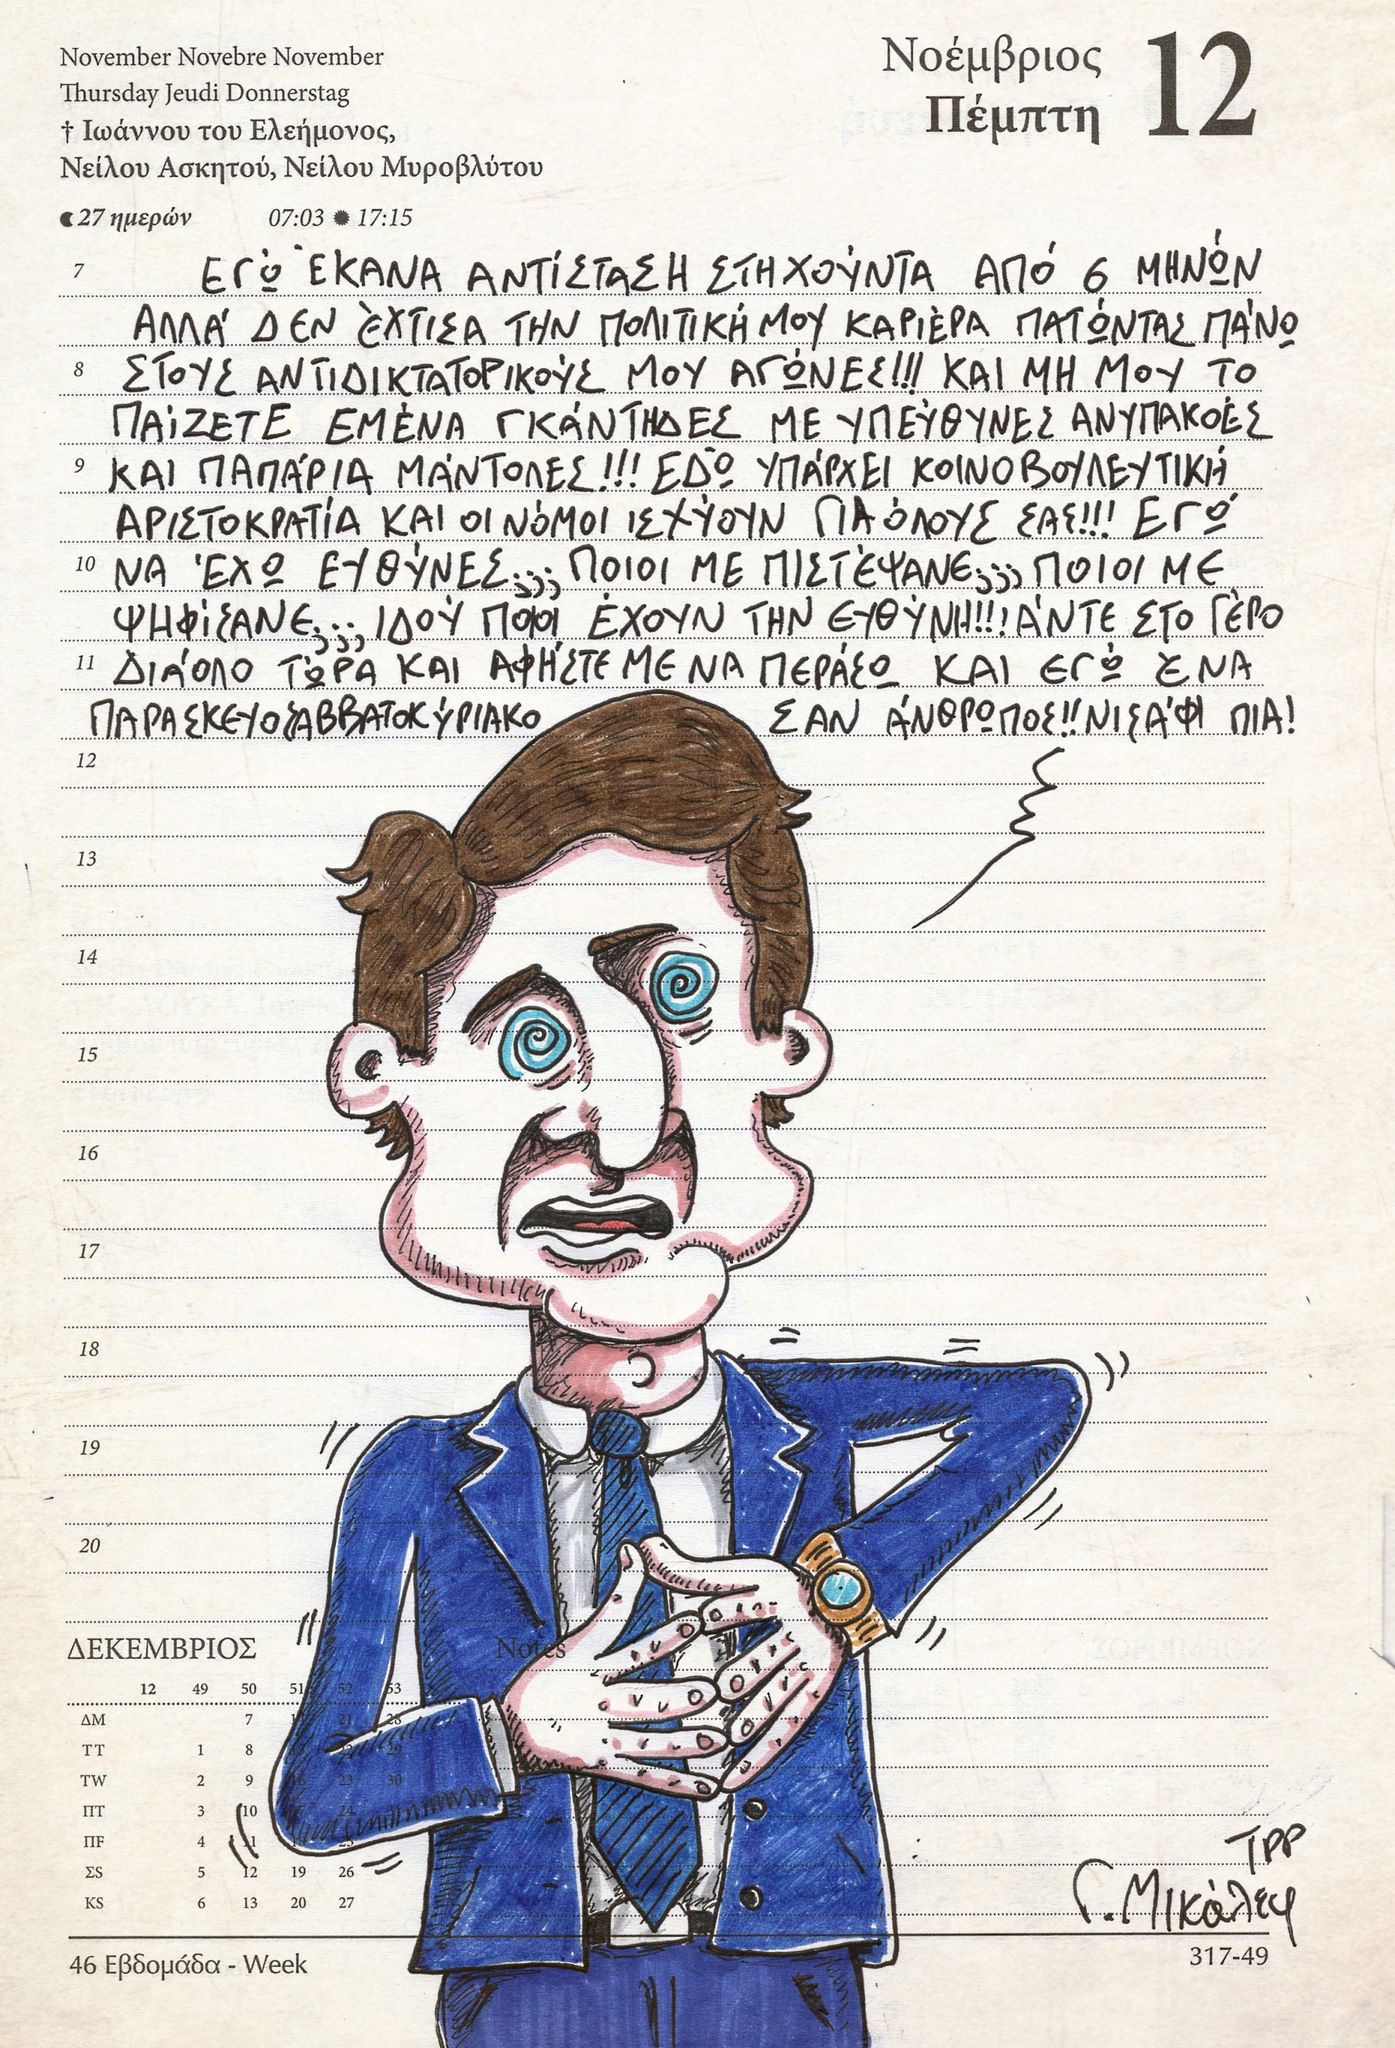 November Novebre November
Thursday Jeudi Donnerstag
† Ιωάννου του Ελεήμονος,
Νείλου Ασκητού, Νείλου Μυροβλύτου
27 ημερών 07:03 17:15
Νοέμβριος
Πέμπτη
12
7 ΕΓΏ ΈΚΑΝΑ ΑΝΤΊΣΤΑΣΗ ΣΤΗ ΧΟΎΝΤΑ ΑΠΌ 6 ΜΗΝΏΝ
ΑΛΛΆ ΔΕΝ ΈΧΤΙΣΑ ΤΗΝ ΠΟΛΙΤΙΚΉ ΜΟΥ ΚΑΡΙΈΡΑ ΠΑΤΏΝΤΑΣ ΠΆΝΩ
8 ΣΤΟΥΣ ΑΝΤΙΔΙΚΤΑΤΟΡΙΚΟΎΣ ΜΟΥ ΑΓΏΝΕΣ!!! ΚΑΙ ΜΗ ΜΟΥ ΤΟ
ΠΑΊΖΕΤΕ ΕΜΈΝΑ ΓΚΆΝΤΗΔΕΣ ΜΕ ΥΠΕΎΘΥΝΕΣ ΑΝΥΠΑΚΟΈΣ
9 ΚΑΙ ΠΑΠΆΡΙΑ ΜΆΝΤΟΛΕΣ!!! ΕΔΏ ΥΠΆΡΧΕΙ ΚΟΙΝΟΒΟΥΛΕΥΤΙΚΉ
ΑΡΙΣΤΟΚΡΑΤΊΑ ΚΑΙ ΟΙ ΝΌΜΟΙ ΙΣΧΎΟΥΝ ΓΙΑ ΌΛΟΥΣ ΣΑΣ!!! ΕΓΏ
10 ΝΑ ΈΧΩ ΕΥΘΎΝΕΣ;;; ΠΟΙΟΙ ΜΕ ΠΙΣΤΈΨΑΝΕ;;; ΠΟΙΟΙ ΜΕ
ΨΗΦΊΣΑΝΕ;;; ΙΔΟΎ ΠΟΙΟΙ ΈΧΟΥΝ ΤΗΝ ΕΥΘΎΝΗ!!! ΆΝΤΕ ΣΤΟ ΓΈΡΟ
11 ΔΙΆΟΛΟ ΤΏΡΑ ΚΑΙ ΑΦΉΣΤΕ ΜΕ ΝΑ ΠΕΡΆΣΩ ΚΑΙ ΕΓΏ ΈΝΑ
ΠΑΡΑΣΚΕΥΟΣΑΒΒΑΤΟΚΎΡΙΑΚΟ ΣΑΝ ΆΝΘΡΩΠΟΣ!! ΝΙΣΆΦΙ ΠΙΑ!
12
13
14
15
16
17
18
19
20
ΔΕΚΕΜΒΡΙΟΣ Notes
12 49 50 51 52 53
ΔΜ 7 21 28
ΤΤ 1 8 29
TW 2 9 23 30
ΠΤ 3 10 24
ΠF 4 11 25
ΣS 5 12 19 26
KS 6 13 20 27
TPP
Γ. Μικάλεφ
46 Εβδομάδα - Week
317-49